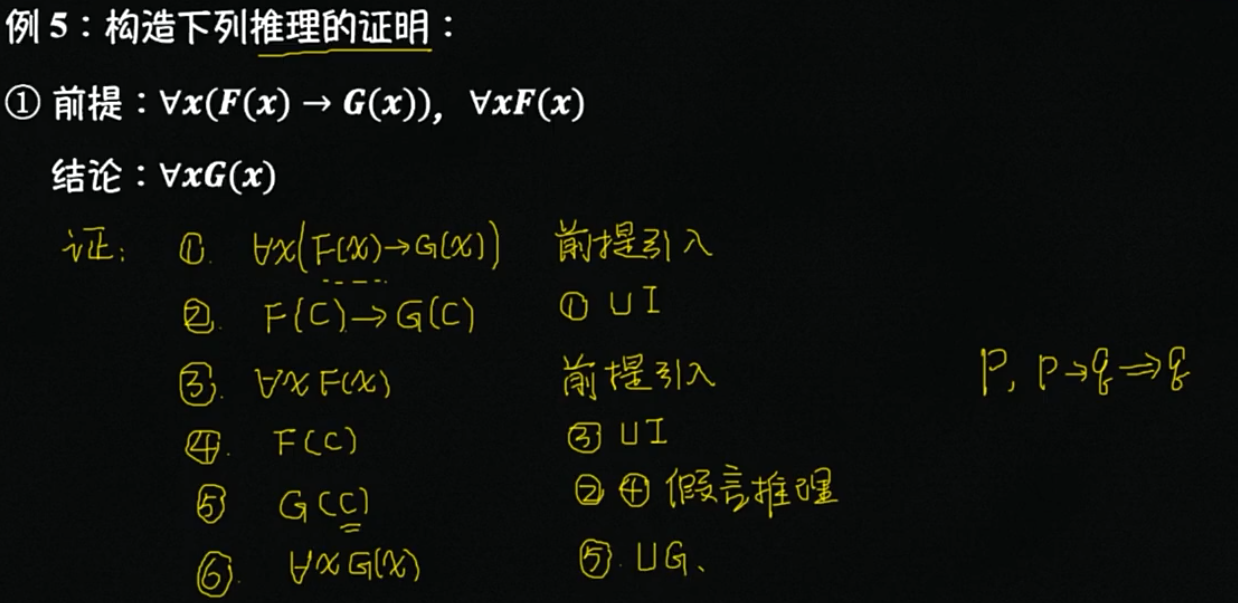 例 5：构造下列推理的证明：
① 前提：∀x(F(x) → G(x))，∀xF(x)
结论：∀xG(x)
证： ①. ∀x(F(x)→G(x)) 前提引入
②. F(C)→G(C) ① UI
③. ∀xF(x) 前提引入
P, P→q⇒q
④. F(C) ③ UI
⑤ G(C) ②④假言推理
⑥. ∀xG(x) ⑤. UG、